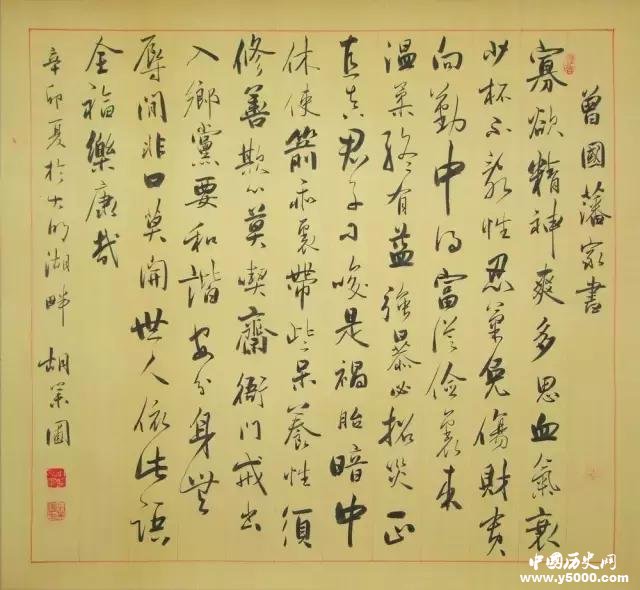 曾國藩家書
寡欲精神爽多思血氣衰
少杯不亂性忍氣免傷財貴
向勤中得富從儉裏來
溫柔終有益強暴必招災正
直真君子刁唆是禍胎暗中
休使箭乖裏帶些呆養性須
修善欺心莫喫齋衙門戒出
入鄉黨要和諧安分身無
辱閒非口莫開世人依此語
全福樂康哉
辛卯夏於大明湖畔 胡
中國历史网
www.y5000.com